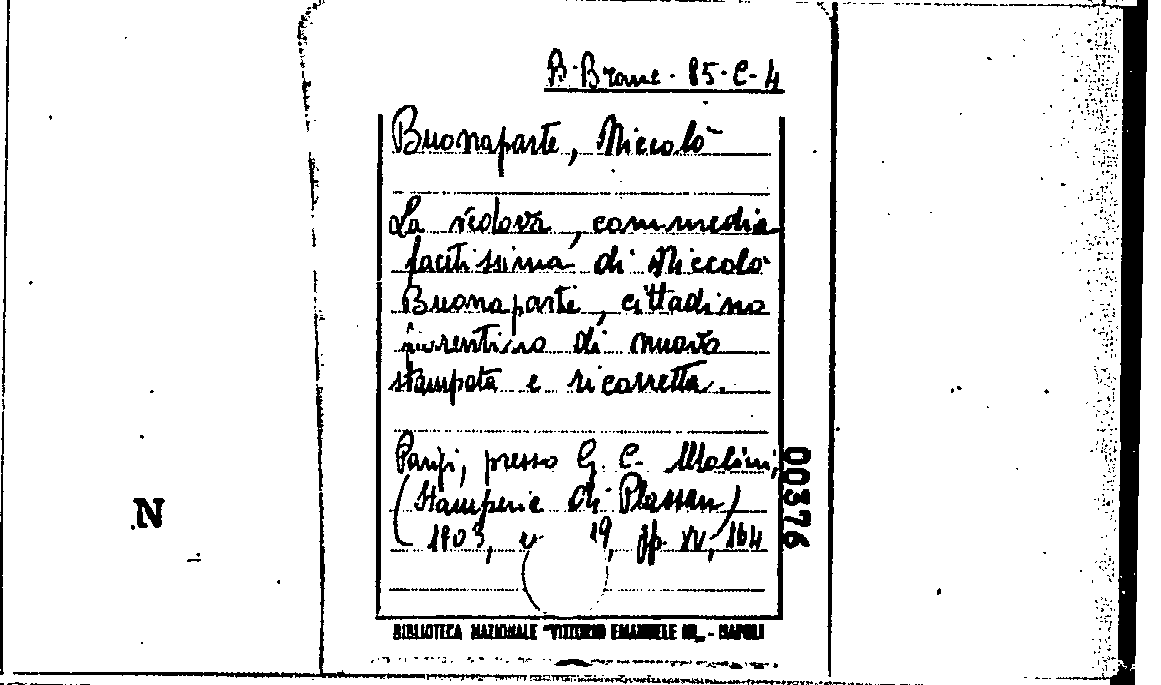 B. Branc. 85-C-4
Buonaparte, Niccolò
La vedova, commedia
facetissima di Niccolò
Buonaparte, cittadino
fiorentino di nuovo
stampata e ricorretta.
Parigi, presso G. C. Molini,
(Stamperia di Plassan)
1803, 19, pp. XV, 164
00376
N
BIBLIOTECA NAZIONALE "VITTORIO EMANUELE III" - NAPOLI